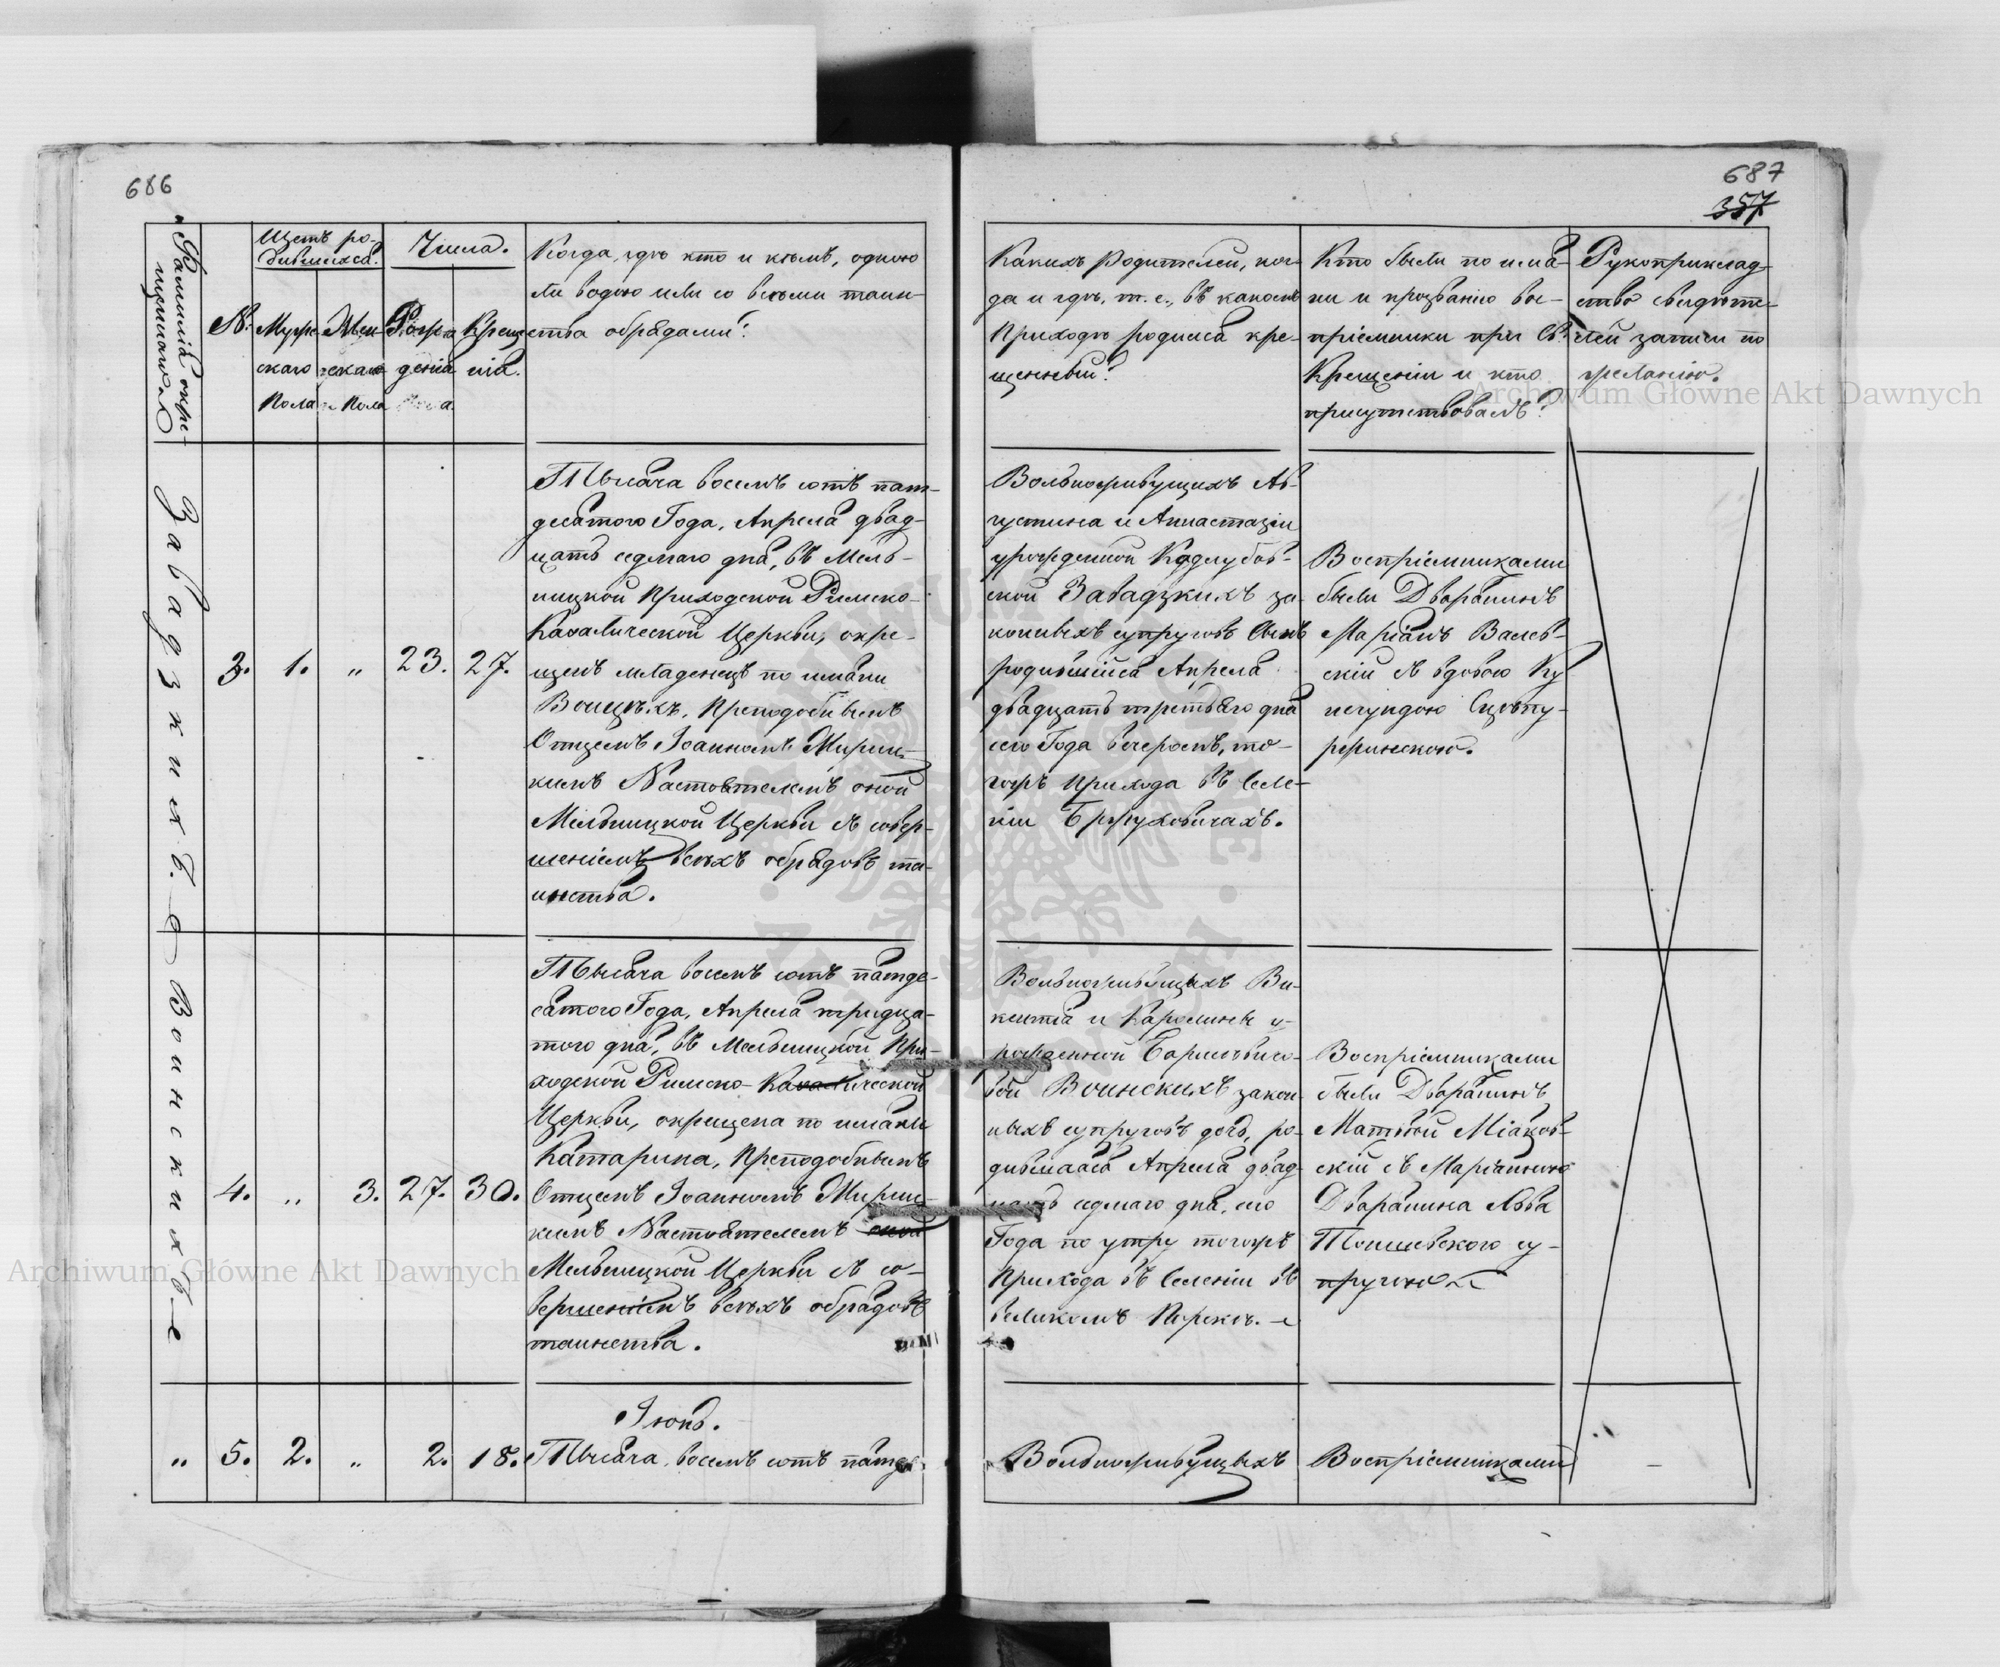 686
687
357
Фамилія окре-
щеннаго.
N.
Щетъ ро-
дившихся.
Муже-
скаго
Пола
Жен-
скаго
Пола
Числа.
Рож-
денія
Креще-
нія.
Когда, гдѣ кто и кѣмъ, одною
ли водою или со всѣми таин-
ства обрядами?
Какихъ Родителей, ког-
да и гдѣ, т. е., въ какомъ
Приходѣ родился кре-
щенный?
Кто были по имя-
ни и прозванію вос-
пріемники при Св.
Крещеніи и кто
присутствовалъ?
Рукоприклад-
ство свидѣте-
лей записи по
желанію.
Завадзкихъ.
3. 1. „ 23. 27.
Тысяча восемъ сотъ пят-
десятого Года, Апреля двад-
цать седмаго дня, въ Мель-
ницкой Приходской Римско-
Каѳалической Церкви, окре-
щенъ младенецъ по имяни
Воицѣхъ, Преподобнымъ
Отцемъ Іоанномъ Мириц-
кимъ Настоятелемъ оной
Мельницкой Церкви съ совер-
шеніемъ всѣхъ обрядовъ та-
инства.
Вольноживущихъ Ав-
густина и Анастазіи
урожденной Кадлубов-
ской Завадзкихъ за-
конныхъ супруговъ сынъ
родившійся Апреля
двадцать третьяго дня
сего Года вечеромъ, то-
гожъ Прихода въ Селе-
ніи Бржуховичахъ.
Воспріемниками
были Дворянинъ
Маріянъ Валев-
скій съ вдовою Ку
негундою
Воинскихъ
4. „ 3. 27. 30.
Тысяча восемъ сотъ пятде-
сятого Года, Апреля тридца-
того дня, въ Мельницкой При-
ходской Римско-Каѳалической
Церкви, окрещена по имяни
Катарина, Преподобнымъ
Отцемъ Іоанномъ Мириц-
кимъ Настоятелемъ оной
Мельницкой Церкви съ со-
вершеніемъ всѣхъ обрядовъ
таинства.
Вольноживущихъ Ви-
кентія и Каролины у-
рожденной
Воинскихъ закон-
ныхъ супруговъ дочь, ро-
дившаяся Апреля двад-
цать седмаго дня, сего
Года по утру тогожъ
Прихода въ Селеніи въ
великомъ Порскѣ.
Воспріемниками
были Дворянинъ
Матвѣй Міаков-
скій съ Маріанною
Дворянина Льва
су-
пругою
„ 5. 2. „ 2. 18.
Іюнь.
Тысяча восемъ сотъ пятде
Вольноживущихъ
Воспріемниками
Archiwum Główne Akt Dawnych
Archiwum Główne Akt Dawnych